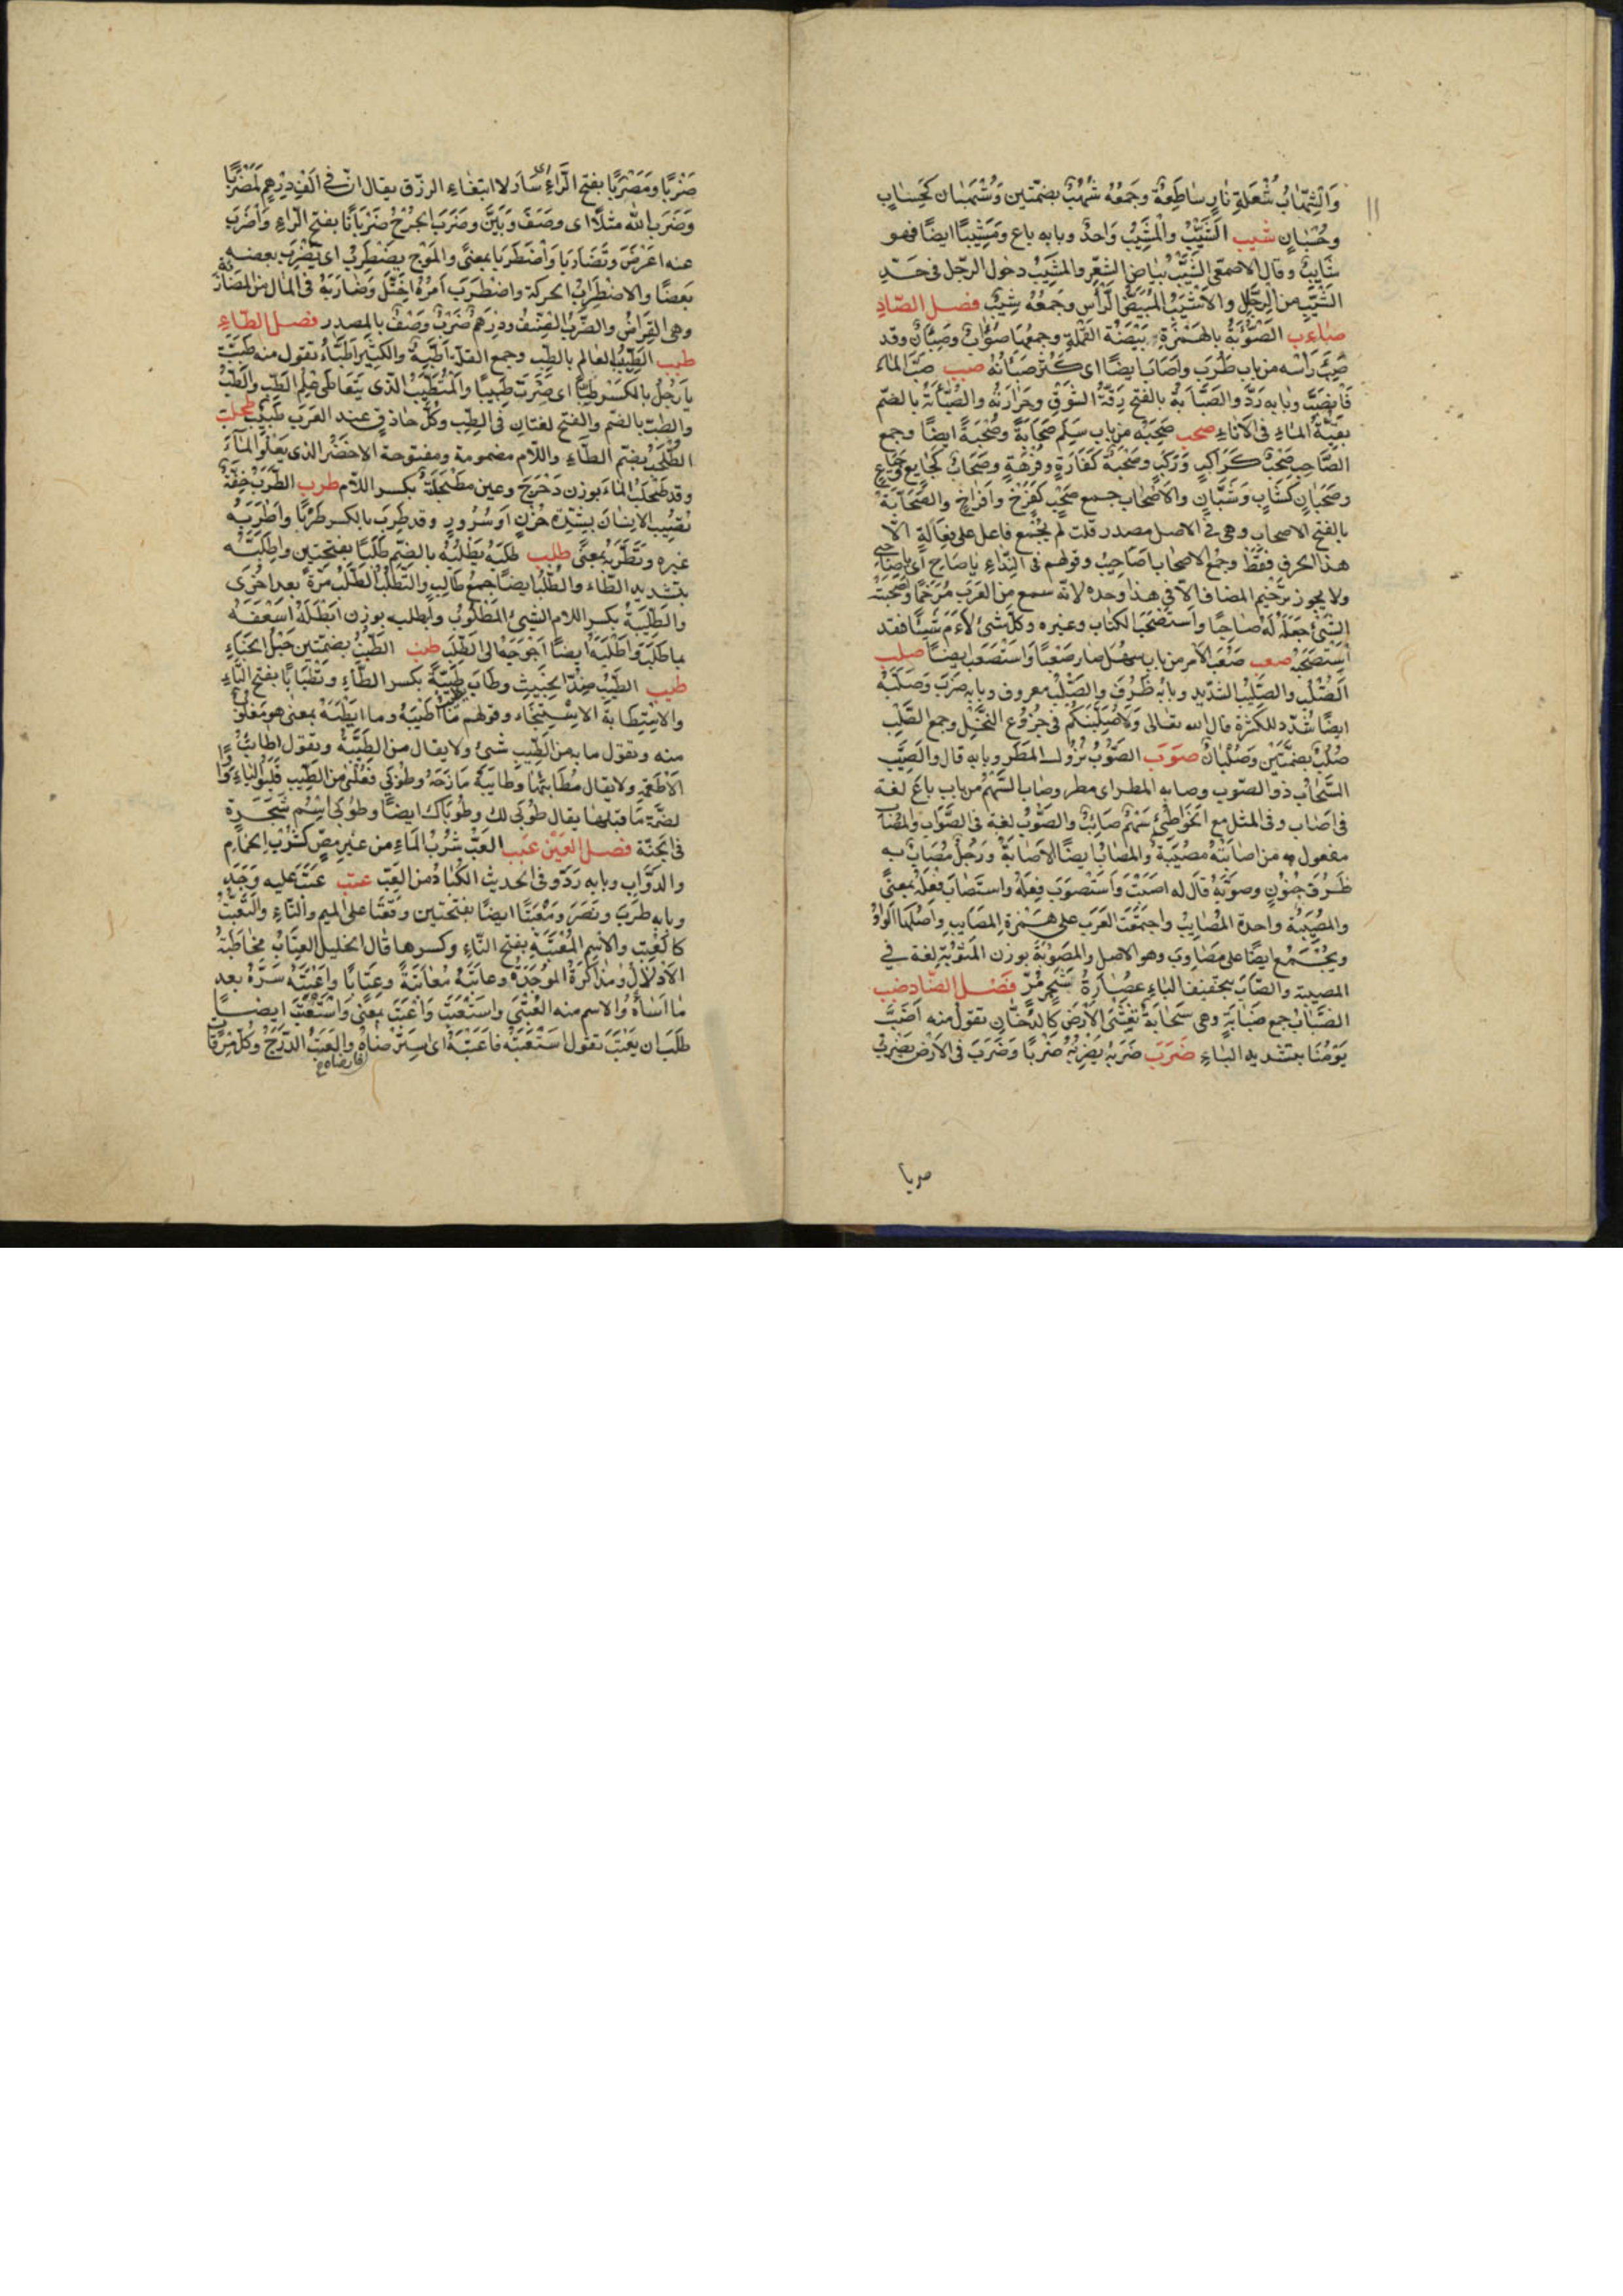 وَالشِّهَابُ شُعْلَةِ نَارٍ سَاطِعَةٌ وجَمْعُهُ شُهُبٌ بضمّتين وَشُهْبَان كَحِسَابٍ
وحُسْبَانٍ شيب الشَّيْبُ والْمَشِيْبُ وَاحِدٌ وبابه باع وَمَشِيْبًا ايضًا فهو
شَايِبٌ وقال الاصمعّى الشَّيْبُ بَيَاضُ الشَّعْرِ والمَشِيْبُ دخول الرّجل فى حَدِّ
الشَّيْبِ من الرِّجَالِ والاَشْيَبُ المُبْيَضُّ الرَّأْسِ وجَمْعُهُ شِيْبٌ فصل الصّادِ
صاءب الصُّؤَابَةُ بالهَمْزَةِ بَيْضَةُ القَمْلَةِ وجمعُهَا صُؤَابٌ وصِئْبَانٌ وقد
صَئِبَ رَأسُه من باب طَرِبَ واَصْاَبَ ايضًا اى كَثُرَ صِئْبَانُهُ صبب صَبَّ المَاءَ
فَانْصَبَّ وبابه رَدَّ والصَّبَابَةُ بالفتح رِقَّةُ الشَّوْقِ وحَرَارَتُهُ والصُّبَابَةُ بالضم
بَقِيَّةُ المَاءِ فى الاِنَاءِ صحب صَحِبَهُ من باب سَلِمَ صَحَابَةً وصُحْبَةً ايضًا وجمع
الصَّاحِبِ صَحْبٌ كَرَاكِبٍ وَرَكْبٍ وصُحْبَةٌ كَفَارِهٍ وفُرْهَةٍ وصِحَابٌ كَجَايِعٍ وجِيَاعٍ
وصُحْبَانٌ كَشَابٍّ وشُبَّانٍ والاَصْحَابُ جمع صَحْبٍ كَفَرْخٍ وأَفْرَاخٍ والصَّحَابَةُ
بالفتح الاصحاب وهى فى الاصل مصدر قلت لم يُجْمَع فاعل على فَعَالَةٍ الّا
هذا الحرف فَقَطْ وجمْعُ الاصحاب اَصَاحِيْبُ وقولهم فى النِّدَاءِ ياصَاحِ اَى ياصَاحِبى
ولا يجوز ترْخيم المضاف الّا فى هذا وحده لانّه سمع من العَرَبِ مُرَخَّمًا واَصْحَبَهُ
الشَّئَ جَعَلَهُ لَهُ صَاحِبًا واسْتَصْحَبَ الكتاب وغيره وكلّ شئ لاءَمَ شَيْئًا فقد
اسْتَصْحَبَهُ صعب صَعُبَ الاَمْر من باب سهُل صار صَعْبًا واسْتَصْعَبَ ايضًا صلب
الصُّلْبُ والصَّلِيْبُ الشّدِيد وبابُه ظَرُفَ والصَّلْبُ معروف وبابه ضَرَبَ وصَلَّبَهُ
ايضًا شُدّد للكثرة قال الله تعالى وَلَاُصَلِّبَنَّكُمْ فى جُذُوْعِ النَّخْلِ وجمع الصَّلِيْبِ
صُلُبٌ بضمّتَيْن وصُلْبَانٌ صَوَبَ الصَّوْبُ نُزُوْلُ المَطَرِ وبابه قال والصَّيِّبُ
السَّحَابُ ذو الصّوْب وصابه المطر اى مطر وصَابَ السَّهْمُ من باب بَاعَ لغة
فى اَصَاب وفى المثل مع الخَوَاطِئِ سَهْمٌ صَائِبٌ والصَّوْبُ لغة فى الصَّوَاب والمُصَابُ
مفعول به من اصابَتْهُ مُصِيْبَةٌ والمُصَابُ ايضًا الاِصَابَةُ ورَجُلٌ مُصَابٌ به
طَرَفُ جُنُوْنٍ وصَوَّبَهُ قَالَ له اصَبْتَ وَاسْتَصْوَبَ فِعْلَهُ واستَصَابَ فِعْلَهُ بمعنًى
والمُصِيْبَةُ واحدة المَصَايِبُ واجتمَعَت العَرَبُ على هَمْزَةِ المصَايِبِ وَاَصْلُهَا الوَاوُ
ويُجْمَعُ ايضًا على مَصَاوِبَ وهو الاصل والمَصُوْبَةُ بوزن المَثُوْبَة لغة فى
المصيبة والصّابُ بتخفيف الباءِ عصُارَةُ شَجَرٍ مُرٍّ فَصْل الضّاد ضبب
الضَّبَابُ جمع ضَبَابَةٍ وهى سَحَابَةٌ تَغْشَى الاَرْضَ كالدُّخَانِ تقول منه اَضَبَّ
يَوْمُنَا بتشديد البَاءِ ضَرَبَ ضَرَبَهُ يَضْرِبُهُ ضَرْبًا وَضَرَبَ فى الاَرْضِ يَضْرِبُ
ضربا
ضَرْبًا ومَضْرَبًا بفتح الرَّاءِ سَارَ لابتغاءِ الرزق يقال انّ فى اَلْفِ دِرْهَمٍ لَمَضْرَبًا
وضَرَبَ الله مثلًا اى وصَفَ وبَيَّنَ وضَرَبَ الجُرْحُ ضَرَبَانًا بفتح الرّاءِ واَضْرَبَ
عنه اعْرَضَ وتَضَارَبَا واضْطَرَبَا بمعنًى والمَوْجُ يضْطَرِبُ اى يَضْرِبُ بعضه
بَعْضًا والاضْطِرَابُ الحركة واضْطَرَبَ اَمْرُهُ اخْتَلَّ وضَارَبَهُ فى المال من المُضَارَبَةِ
وهى القِرَاضُ والضَّرْبُ الصِّنْفُ ودِرْهَمٌ ضَرْبٌ وُصِفَ بالمصدر فصل الطّاءِ
طبب الطَّبِيْبُ العالم بالطِّبِّ وجمع القلّة اَطِبَّةٌ والكَثِيْر اَطِبَّاءُ تقول منه طَبِبْتَ
يا رَجُلُ بالكَسْرِ طِبًّا اى صِرْتَ طَبِيْبًا والمُتَطَبِّبُ الّذى يَتَعَاطَى عِلْمَ الطِّبِّ والطَّبُّ
والطُّبّ بالضّمّ والفتح لغتان فى الطِّبّ وكُلُّ حَاذِقٍ عند العَرَب طَبِيْبٌ طحلب
الطُّحْلَبُ بضم الطّاءِ واللّام مضمومة ومفتوحة الاخضر الذى يَعْلُو المَاءَ
وقد طَحْلَبَ المَاءُ بوزن دَحْرَجَ وعين مُطَحْلِبَةٌ بكسر اللّام طرب الطَّرَبُ خِفَّةٌ
تُصِيْبُ الاِنْسَانَ بشِدّة حُزْنٍ اَوْ سُرُورٍ وقد طَرِبَ بالكسر طَرَبًا وَاَطْرَبَهُ
غيره وتَطَرَّبَهُ بمعنًى طلب طَلَبَهُ يَطْلُبُهُ بالضّمّ طَلَبًا بفتحتين واطَّلَبَهُ
بتشديد الطّاء والطَّلَبُ ايضًا جمع طَالِبٍ والتَّطَلُّبُ الطَّلَبُ مَرّةً بعد اخْرَى
والطَّلِبَةُ بكسر اللام الشئ المَطْلُوْبُ واَطْلَبَه بوزن ابْطَلَهُ اسْعَفَهُ
بما طَلَبَ واَطْلَبَهُ ايضًا اَحْوَجَهُ الى الطَّلَبِ طنب الطُّنُبُ بضمّتين حَبْلُ الخِبَاءِ
طيب الطَّيِّبُ ضِدّ الخَبِيثِ وطَابَ طِيْبَةً بكسر الطّاءِ وتَطْيَابًا بفتح التّاءِ
والاسْتِطَابَةُ الاسْتِنْجَاء وقولهم مَا اَطْيَبَهُ وما اَيْطَبَهُ بمعنى هو مَقْلُوْبٌ
منه وتقول ما به من الطِّيْبِ شئ ولا يقال من الطِّيْبَةِ وتقول اطايِبُ
الاَطْعِمَةِ ولا يقال مُطَايِبُهَا وطَايَبَهُ مَازَحَهُ وطُوْبَى فُعْلَى من الطِّيْبِ قَلَبُوا اليَاءَ وَاوًا
لضَمَّة مَا قبلها يقال طُوْبَى لك وطُوْبَاكَ ايضًا وطُوْبَى اسْم شَجَرة
فى الجَنّة فصل العَيْن عبب العَبُّ شُرْبُ المَاءِ من غَيْرِ مصٍّ كشُرْب الحَمَامِ
والدَّوَابِ وبابه رَدَّ وفى الحديث الكُبَادُ من العَبِّ عتب عَتَبَ عليه وَجَدَ
وبابه طَرِبَ ونَصَرَ ومَعْتَبًا ايضًا بفتحتين وقفتا على الميم والتّاءِ والتَّعَتُّبُ
كالعَتْبِ والاسم المُعْتَبَةُ بفتح التّاءِ وكسرها قال الخليل العِتَابُ مُخَاطَبَةُ
الاِدْلَالِ ومُذَاكَرَةُ المَوْجِدَةِ وعاتَبَهُ مُعَاتَبَةً وعِتَابًا واَعْتَبَهُ سَرَّهُ بعد
مَا اَسَاءَهُ والاسم منه العُتْبَى واسْتَعْتَبَ واَعْتَبَ بمعنى وَاسْتَعْتَبَ ايضا
طَلَبَ ان يُعْتَبَ تقول اسْتَعْتَبْتُهُ فاَعْتَبَنِى اى اسْتَرْضَاهُ والعَتَبُ الدَّرَجُ وكُلّ مِرْقَاةٍ
فارضاه